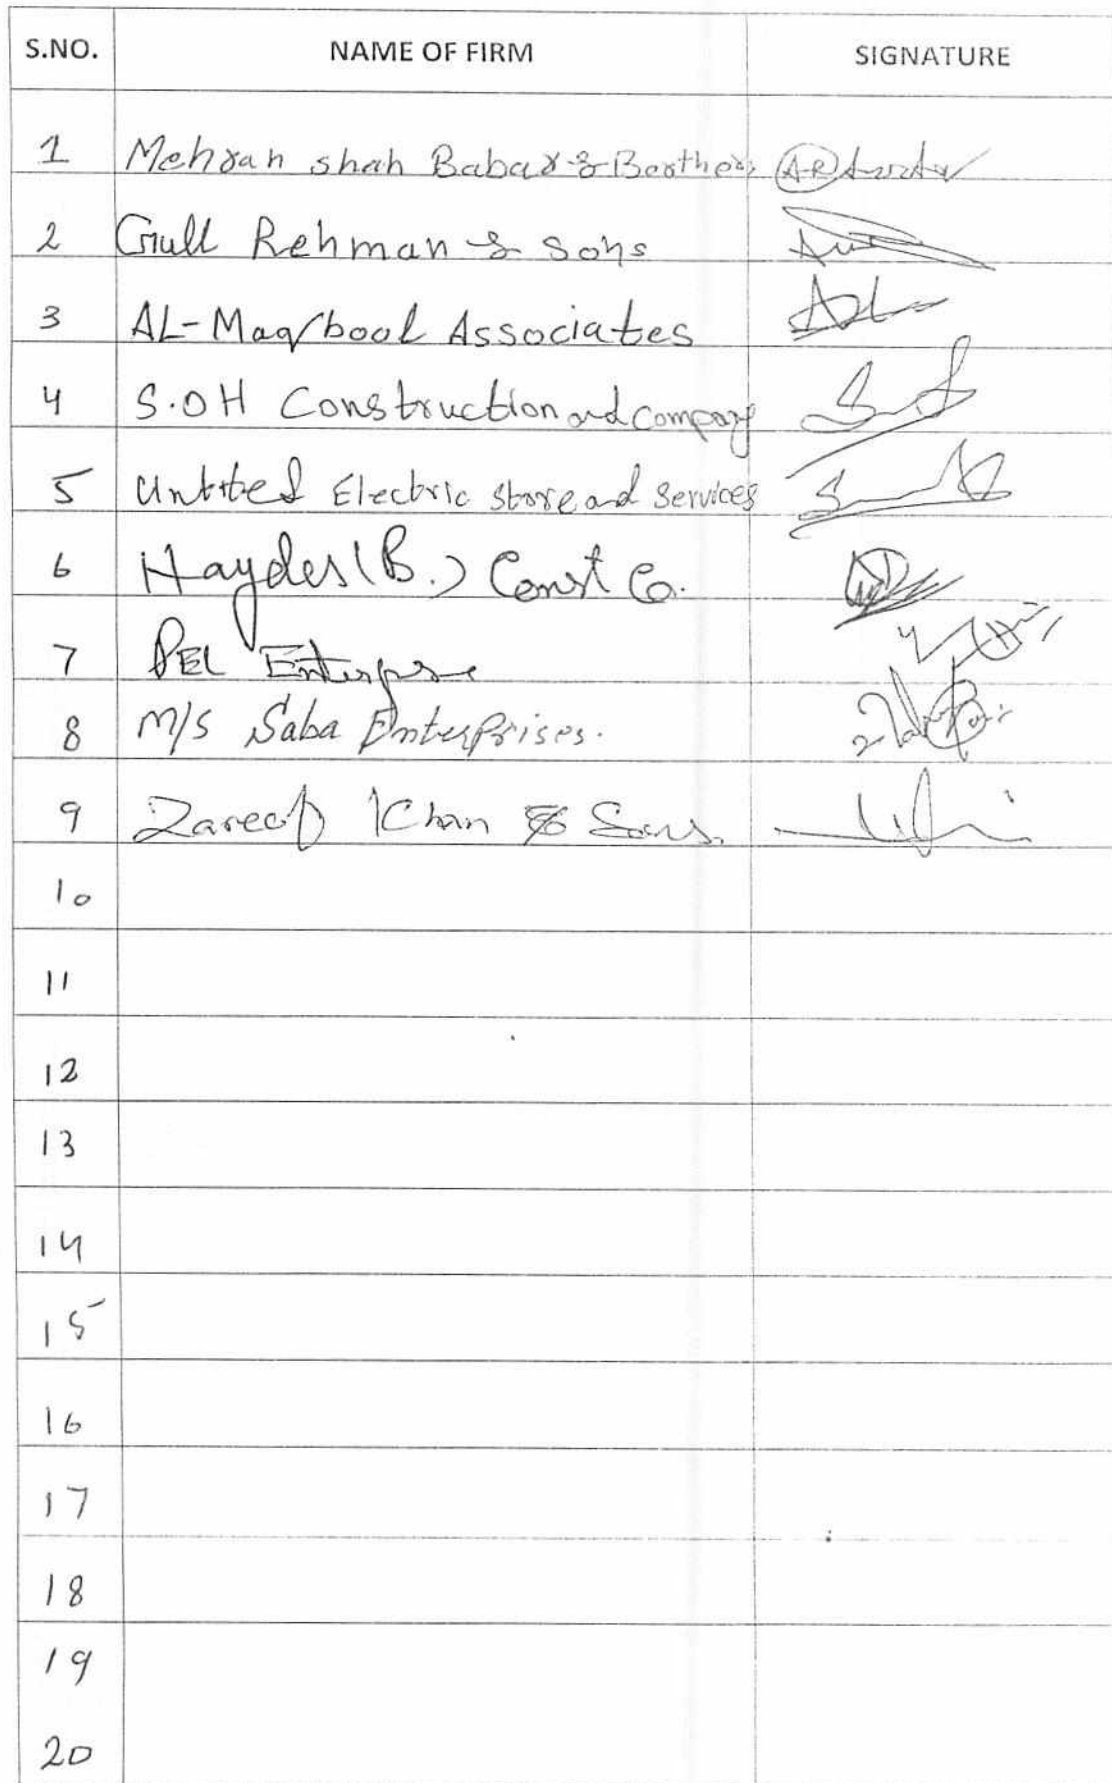 S.NO. NAME OF FIRM SIGNATURE
1 Mehran shah Babar & Borthers
2 Gull Rehman & Sons
3 AL-Maqbool Associates
4 S.OH Construction and Company
5 Untited Electric store and Services
6 Hayder (B.) Const Co.
7 PEL Enterprse
8 M/S Saba Enterprises.
9 Zareef Khan & Sons.
10
11
12
13
14
15
16
17
18
19
20